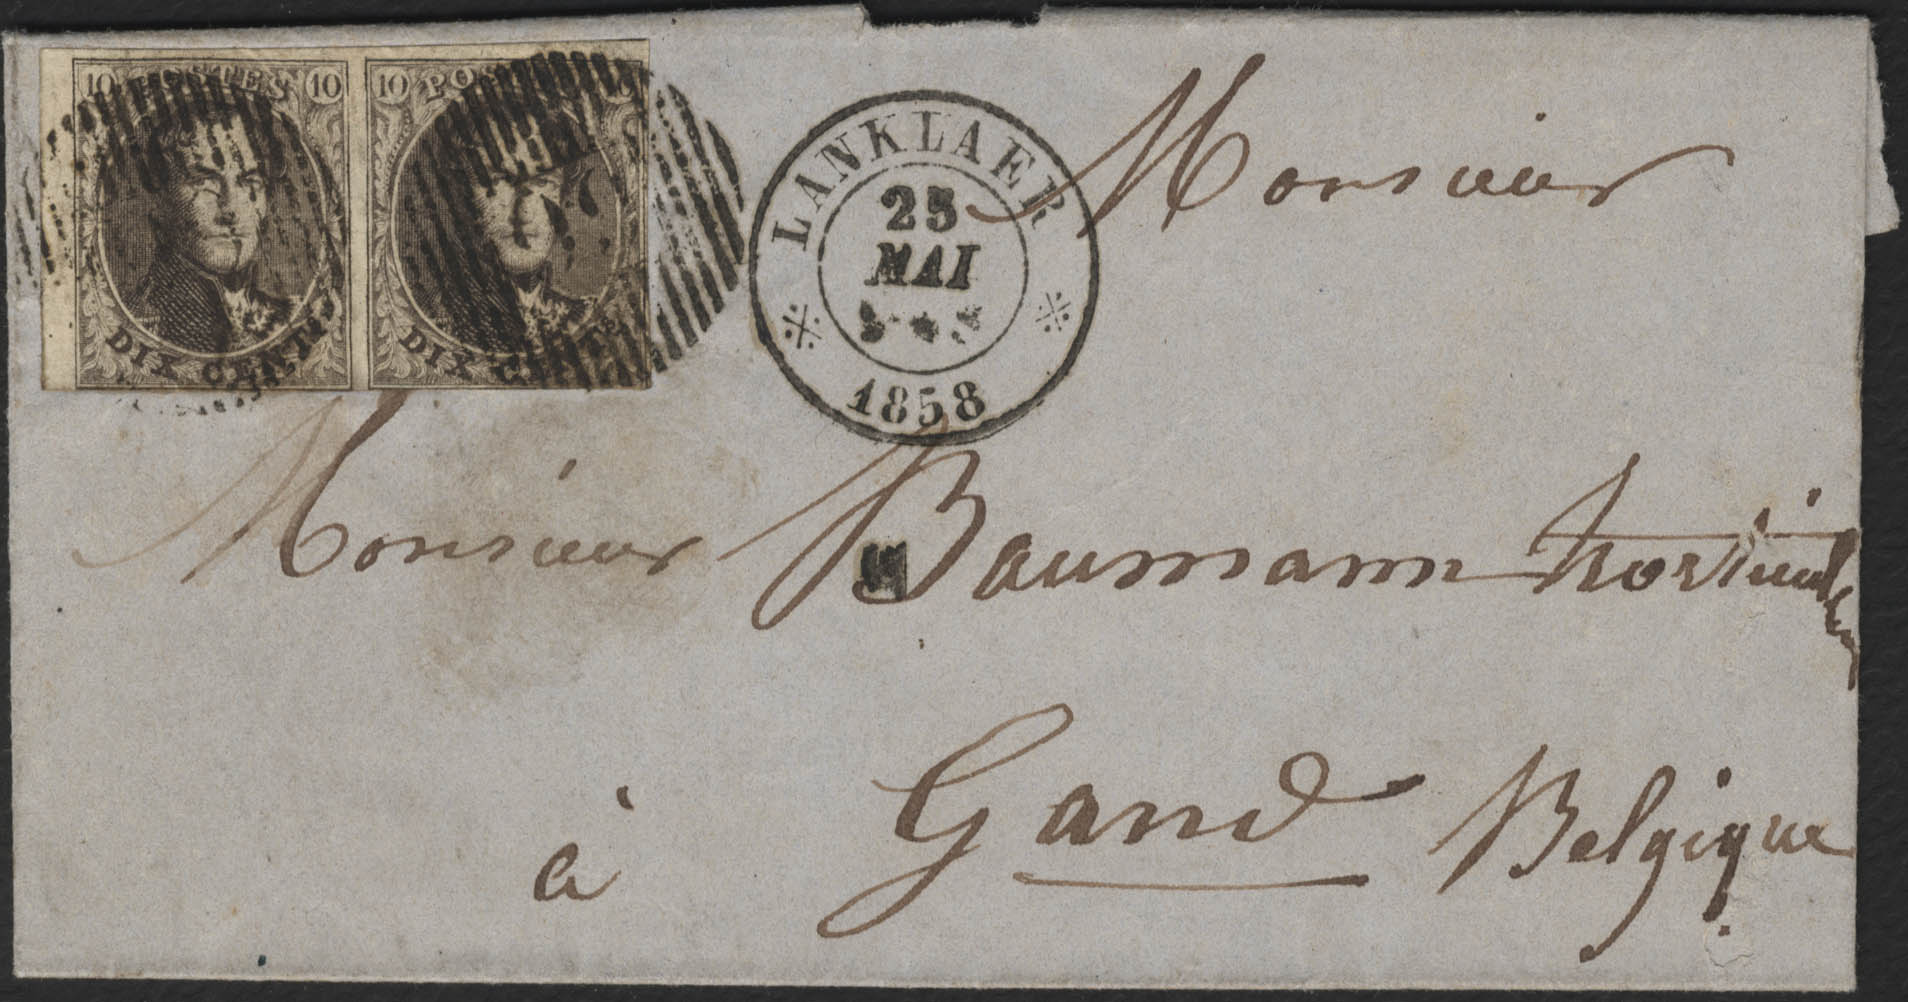 10 POSTES 10
DIX CENTS
10 POS
DIX CENTS
LANKLAER
25
MAI
1858
Monsieur
Monsieur Baumann horticul
teur
à Gand Belgique